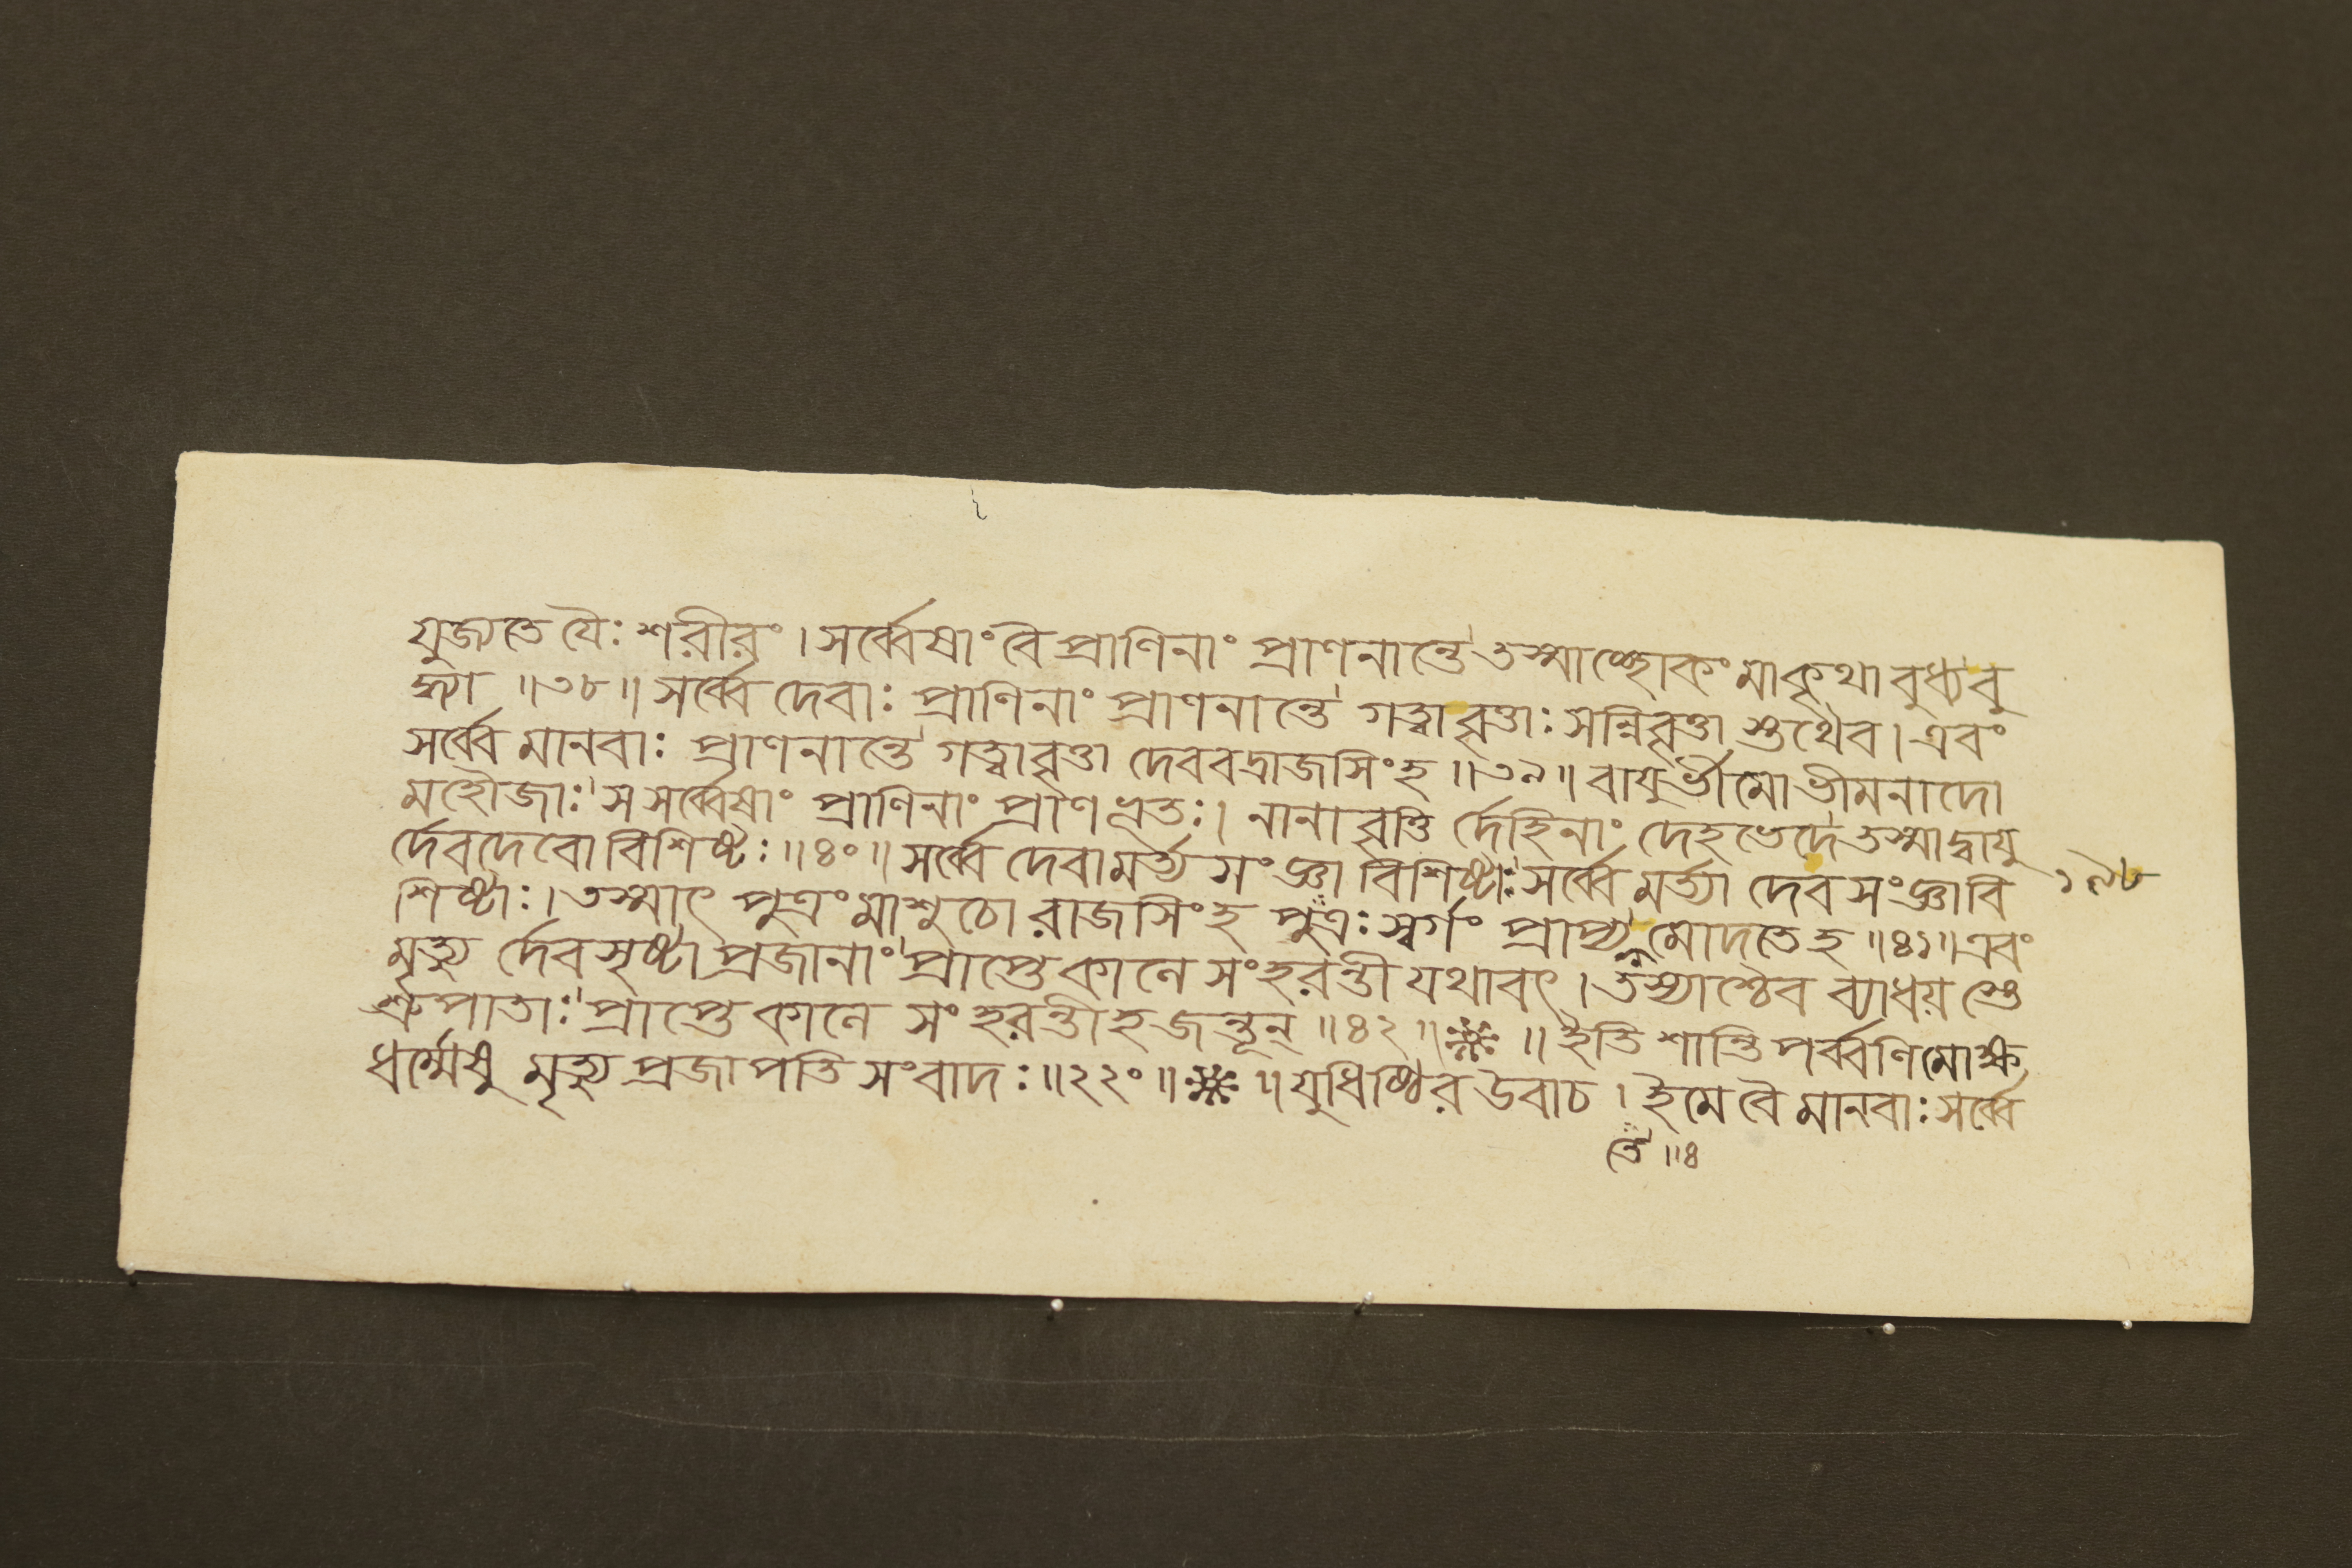 যুজ্যতে যৈঃ শরীরং । সর্ব্বেষাং বৈ প্রাণিনাং প্রাণনান্তে তস্মাচ্ছোকং মাকৃথা বুধ্যবু
দ্ধ্যা ॥৩৮॥ সর্ব্বে দেবাঃ প্রাণিনাং প্রাণনান্তে গত্বাবৃত্তাঃ সন্নিবৃত্তা স্তথৈব । এবং
সর্ব্বে মানবাঃ প্রাণনান্তে গত্বাবৃত্তা দেববদ্রাজসিংহ ॥৩৯॥ বায়ুর্ভীমো ভীমনাদো
মহৌজাঃ স সর্ব্বেষাং প্রাণিনাং প্রাণভূতঃ । নানাবৃত্তি র্দেহিনাং দেহভেদে তস্মাদ্বায়ু
র্দেবদেবো বিশিষ্টঃ ॥৪০॥ সর্ব্বে দেবা মর্ত্য সংজ্ঞা বিশিষ্টাঃ সর্ব্বে মর্ত্ত্যা দেব সংজ্ঞাবি
১৯৮
শিষ্টাঃ । তস্মাৎ পুত্রং মাশুচো রাজসিংহ পুত্রঃ স্বর্গং প্রাপ্য মোদতে হ ॥৪১॥ এবং
মৃত্যু র্দেবসৃষ্টা প্রজানাং প্রাপ্তে কালে সংহরন্তী যথাবৎ । তস্যাশ্চৈব ব্যাধয় স্তে
শ্রুপাতাঃ প্রাপ্তে কালে সংহরন্তীহ জন্তূন্ ॥৪২॥ ॥ ইতি শান্তিপর্ব্বণি মোক্ষ
ধর্ম্মেষু মৃত্যু প্রজাপতি সংবাদঃ ॥২২০॥ ॥ যুধিষ্ঠির উবাচ । ইমে বৈ মানবাঃ সর্ব্বে
তে ॥৪